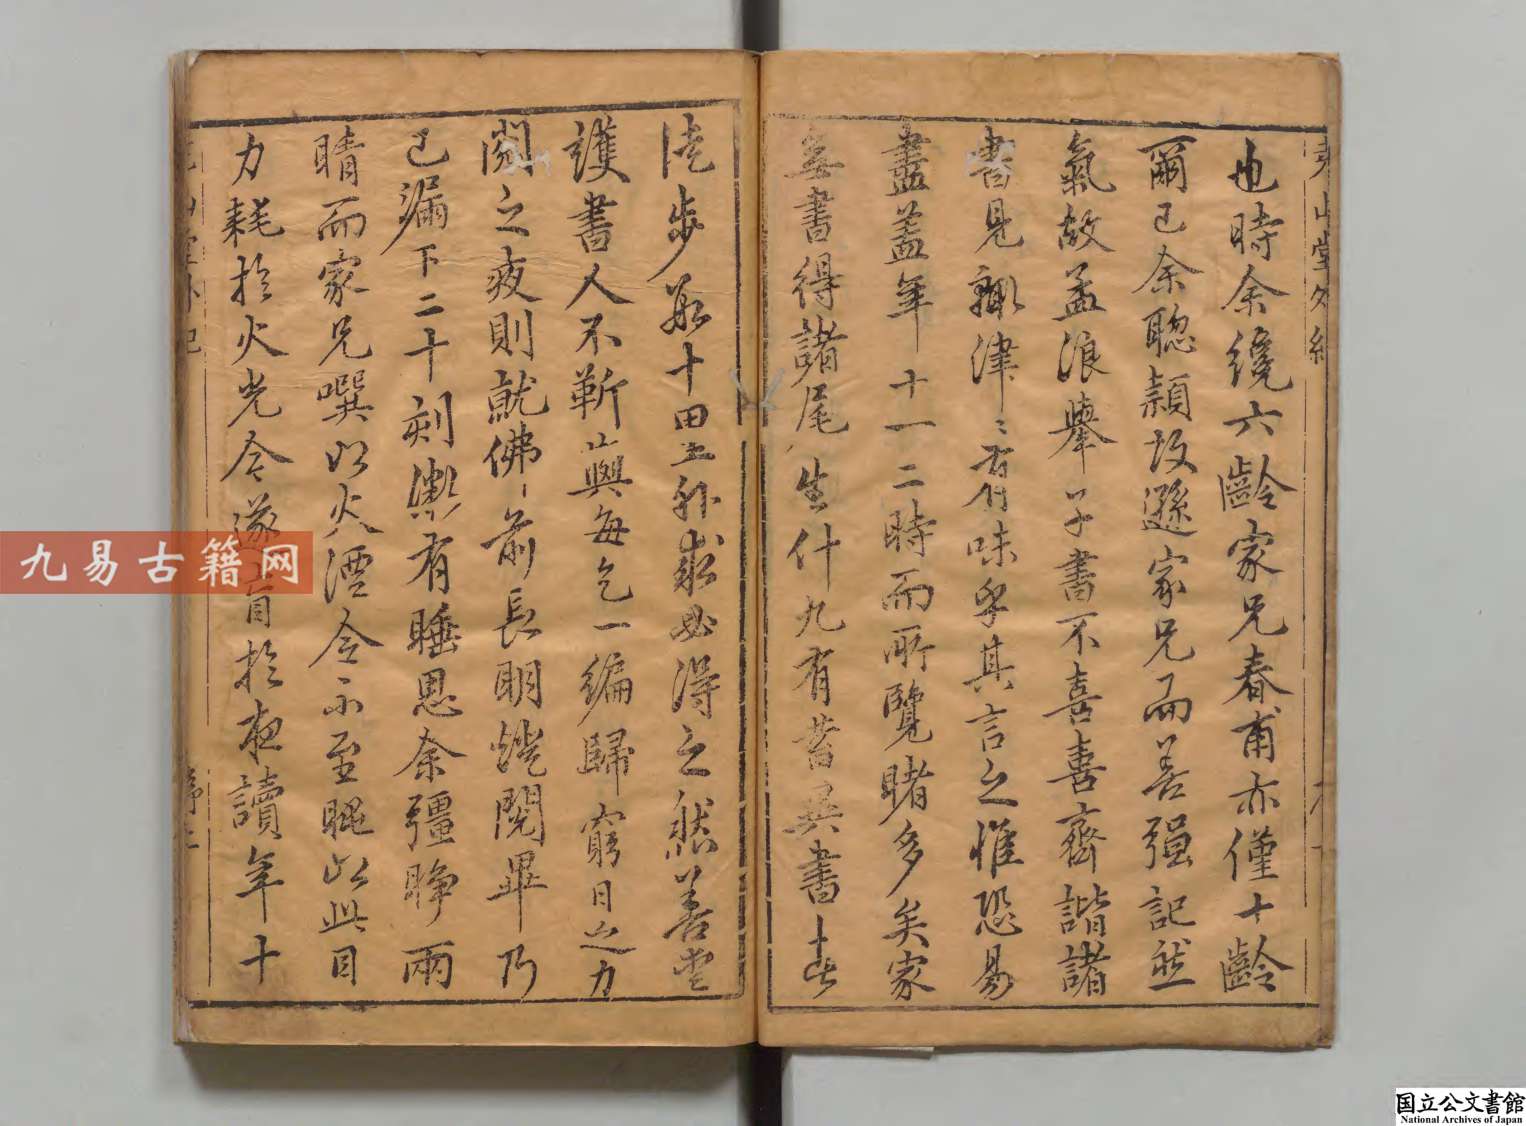 堯山堂外紀
也時余纔六齡家兄春甫亦僅十齡
爾已余聰穎故遜家兄而善强記然
氣故孟浪擧子書不喜喜齊諧諸
書見輙津〻有味乎其言之惟恐易
盡蓋年十一二時而所覽睹多矣家
無書得諸尾生什九有蓄異書者
徒步數十里外求必得之然善愛
護書人不靳與每乞一編歸窮日之力
閱之夜則就佛前長明燈閱畢乃
已漏下二十刻漸有睡思余彊睜兩
睛而家兄噀以火酒令不至睏以此目
力耗於火光今遂盲於夜讀年十
九易古籍网
国立公文書館
National Archives of Japan